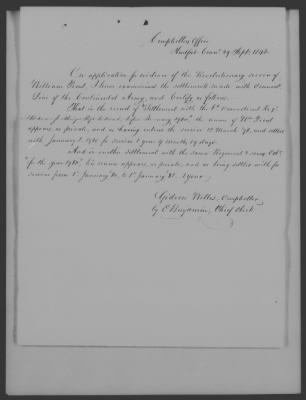 Comptrollers Office
Hartford Conn. 29 Sept. 1843.
On application for evidence of the Revolutionary service of
William Bent, I have examined the settlements made with Connect.
Line of the Continental Army, and Certify as follows.
That in the record of "Settlement with the 4th Connecticut Reg.
1780," the name of Wm Bent
appears, as private, and as having entered the service 12 March and settled
with January 1, 1780 for service 1 year 9 months 19 days.
And in another settlement with the same Regiment
"for the year 1780," his name appears, as private, and as being settled with for
service from 1st January to 1st January 81. 1 year.
Gideon Welles, Comptroller
by Benjamin, Chief Clerk